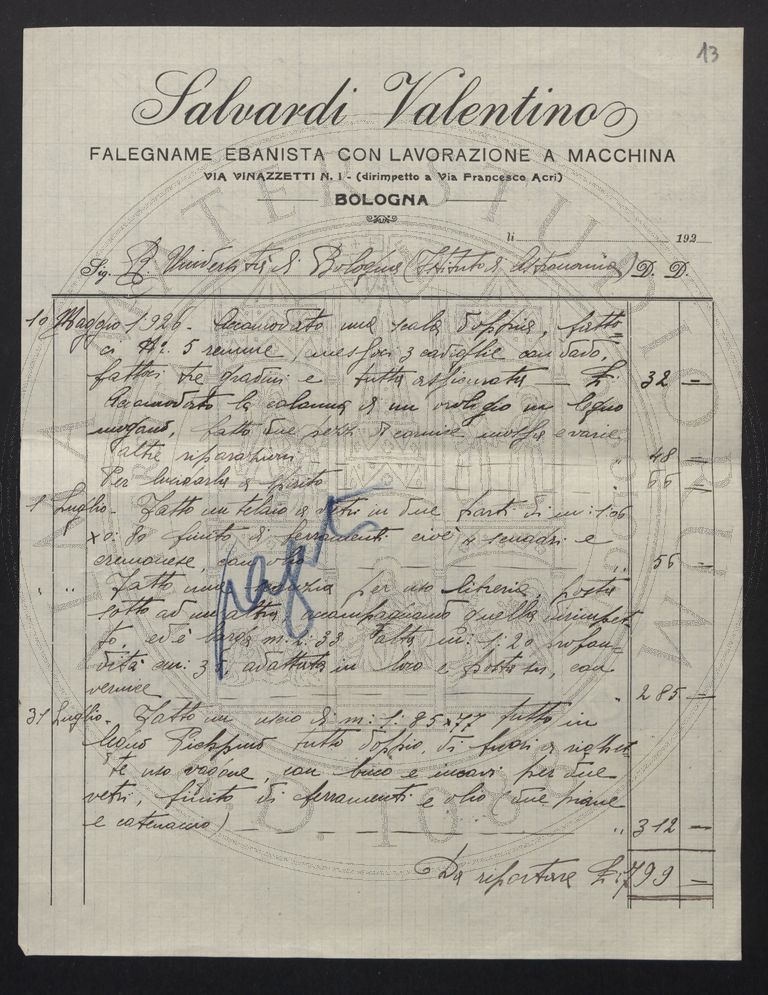 13
Salvardi Valentino
FALEGNAME EBANISTA CON LAVORAZIONE A MACCHINA
VIA VINAZZETTI N. 1 - (dirimpetto a Via Francesco Acri)
BOLOGNA
li 192
Sig. R. Università di Bologna (Istituto di Astronomia) D. D.
10 Maggio 1926 - Accomodato una scala doppia, fatto=
ci N: 5 remine, messoci 3 caviglie con dado,
fattoci tre gradini e tutta assicurata — £: 32 —
Accomodato la colonna di un orologio in legno
mogano, fatto due pezzi di cornice mossa e varie
altre riparazioni " 48 —
Per lucidarla a spirito " 66 —
1 Luglio - Fatto un telaio a vetri in due parti di m: 1:06
x 0: 80 finito di ferramenti cioè 4 squadri e
cremonese, con olio " 56 —
" " Fatto una per uso libreria, posta
sotto ad un altra, accompagnando quella dirimpet
to, ed è larga m: 2: 33 alta m: 1: 20 profon=
dità cm: 35, adattata in loco e posta su, con
vernice " 285 —
31 Luglio - Fatto un uscio di m: 1: 85 x 77 tutto in
legno Pichpino tutto doppio, di fuori a righet
te uso vagone, con buco e incavi per due
vetri, finito di ferramenti e olio (due piane
e catenaccio) — " 312 —
Da riportare £: 799 —
pagato